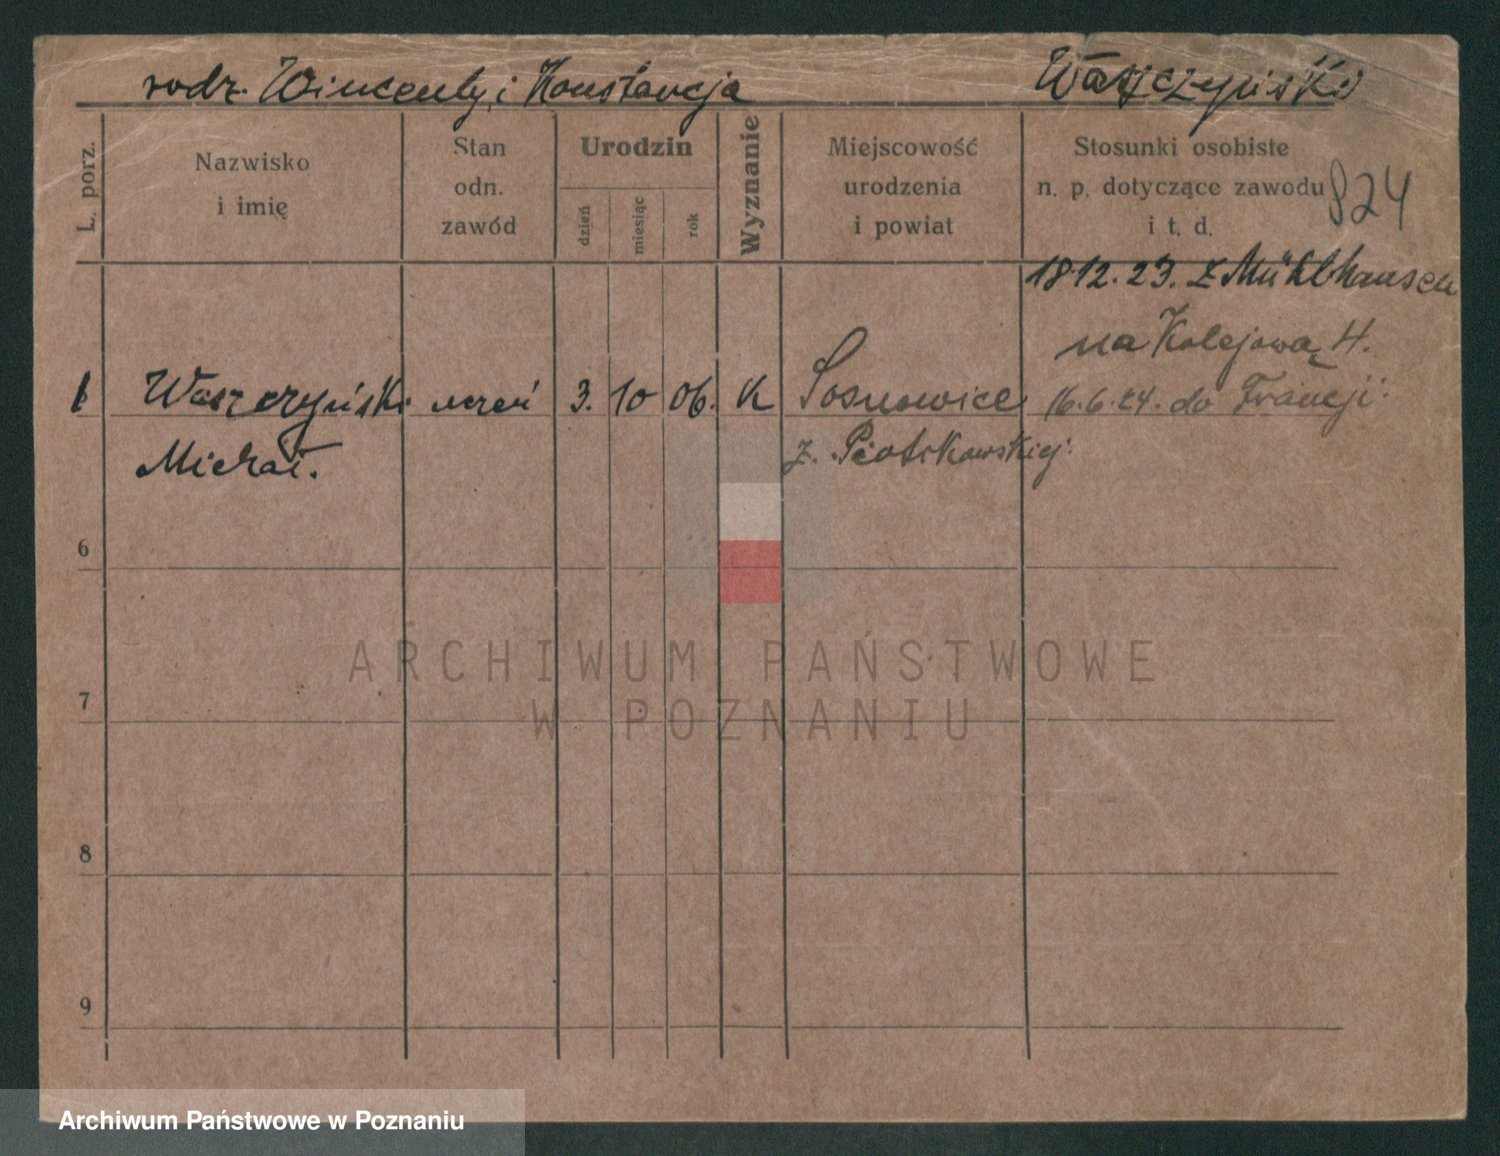 rodz. Wincenty i Konstancja Waszczyński
L. porz.
Nazwisko
i imię
Stan
odn.
zawód
Urodzin
dzień
miesiąc
rok
Wyznanie
Miejscowość
urodzenia
i powiat
Stosunki osobiste
n. p. dotyczące zawodu
i t. d.
824
18.12.23. z Mühlhausen
na Kolejową 4.
1 Waszczyński uczeń 3. 10 06. K Sosnowice 16.6.24. do Francji.
Michał. z. Piotrkowskiej.
6
7
8
9
ARCHIWUM PAŃSTWOWE
W POZNANIU
Archiwum Państwowe w Poznaniu